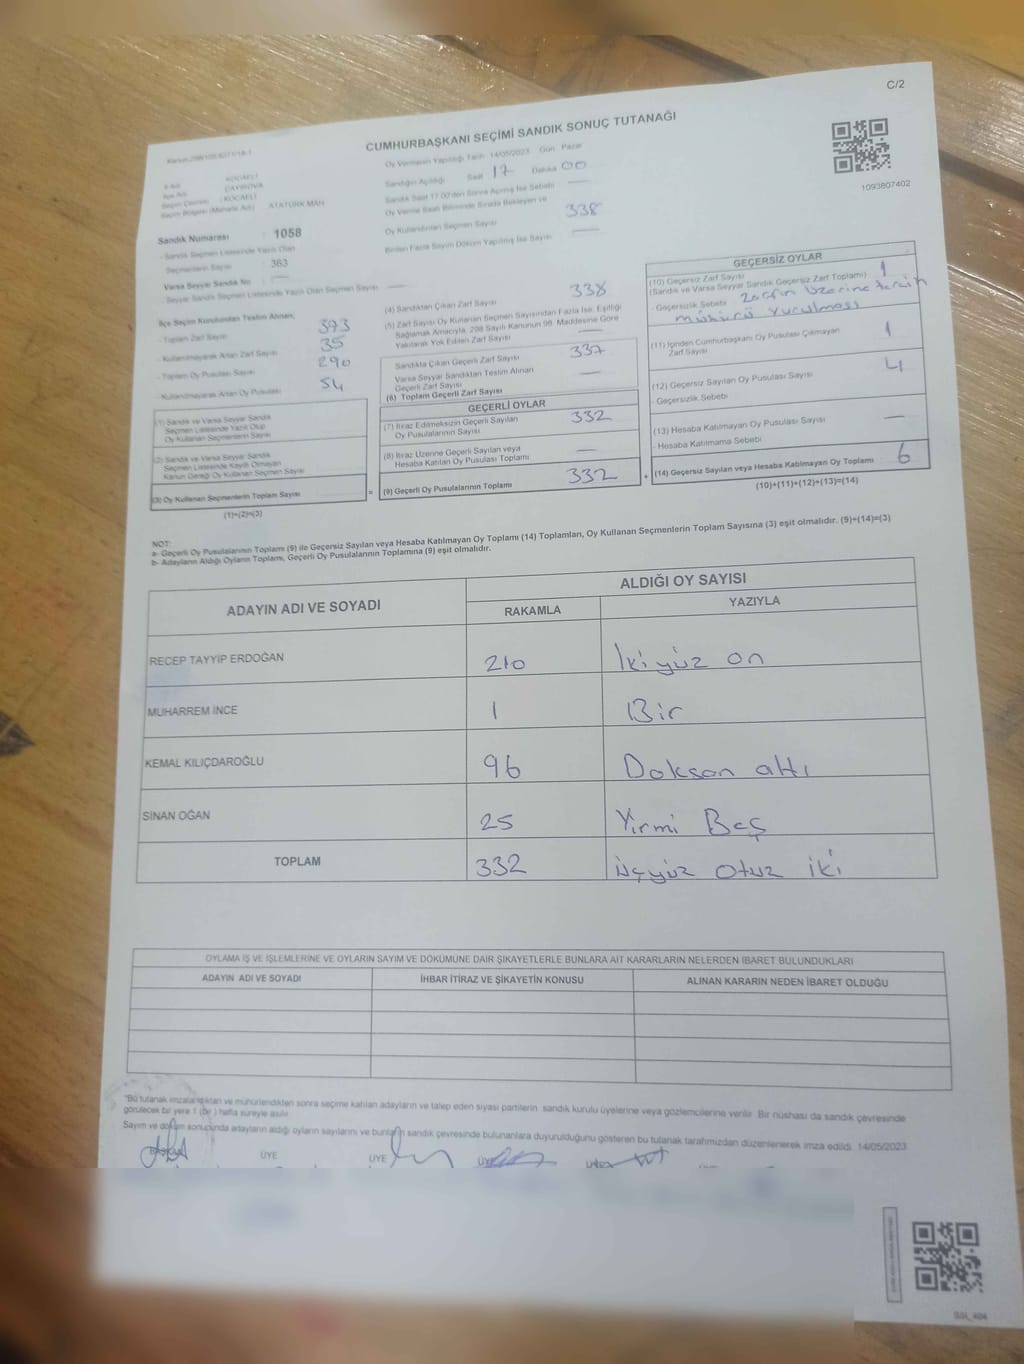 C/2
CUMHURBAŞKANI SEÇİMİ SANDIK SONUÇ TUTANAĞI
Oy Vermenin Yapıldığı Tarih: 14/05/2023 Gün: Pazar
Sandığın Açıldığı Saat 17 Dakika 00
Sandık Saat 17:00'den Sonra Açılmış İse Sebebi —
Oy Verme Saati Bitiminde Sırada Bekleyen ve
Oy Kullandırılan Seçmen Sayısı 338
Birden Fazla Sayım Döküm Yapılmış İse Sayısı —
1093807402
İli Adı : KOCAELİ
İlçe Adı : ÇAYIROVA
Seçim Çevresi : KOCAELİ
Seçim Bölgesi (Mahalle Adı) : ATATÜRK MAH
Sandık Numarası : 1058
- Sandık Seçmen Listesinde Yazılı Olan
Seçmenlerin Sayısı : 363
Varsa Seyyar Sandık No : —
- Seyyar Sandık Seçmen Listesinde Yazılı Olan Seçmen Sayısı : —
İlçe Seçim Kurulundan Teslim Alınan;
- Toplam Zarf Sayısı 373
- Kullanılmayarak Artan Zarf Sayısı 35
- Toplam Oy Pusulası Sayısı 290
- Kullanılmayarak Artan Oy Pusulası 54
(1) Sandık ve Varsa Seyyar Sandık
Seçmen Listesinde Yazılı Olup
Oy Kullanan Seçmenlerin Sayısı
(2) Sandık ve Varsa Seyyar Sandık
Seçmen Listesinde Kayıtlı Olmayan
Kanun Gereği Oy Kullanan Seçmen Sayısı
(3) Oy Kullanan Seçmenlerin Toplam Sayısı
(1)+(2)=(3)
(4) Sandıktan Çıkan Zarf Sayısı 338
(5) Zarf Sayısı Oy Kullanan Seçmen Sayısından Fazla İse, Eşitliği
Sağlamak Amacıyla, 298 Sayılı Kanunun 98. Maddesine Göre
Yakılarak Yok Edilen Zarf Sayısı —
Sandıkta Çıkan Geçerli Zarf Sayısı 337
Varsa Seyyar Sandıktan Teslim Alınan
Geçerli Zarf Sayısı —
(6) Toplam Geçerli Zarf Sayısı
GEÇERLİ OYLAR
(7) İtiraz Edilmeksizin Geçerli Sayılan
Oy Pusulalarının Sayısı 332
(8) İtiraz Üzerine Geçerli Sayılan veya
Hesaba Katılan Oy Pusulası Toplamı —
= (9) Geçerli Oy Pusulalarının Toplamı 332
GEÇERSİZ OYLAR
(10) Geçersiz Zarf Sayısı
(Sandık ve Varsa Seyyar Sandık Geçersiz Zarf Toplamı) : 1
- Geçersizlik Sebebi : Zarfın üzerine tercih
mührü vurulması
(11) İçinden Cumhurbaşkanı Oy Pusulası Çıkmayan
Zarf Sayısı 1
(12) Geçersiz Sayılan Oy Pusulası Sayısı 4
- Geçersizlik Sebebi
(13) Hesaba Katılmayan Oy Pusulası Sayısı —
- Hesaba Katılmama Sebebi
+ (14) Geçersiz Sayılan veya Hesaba Katılmayan Oy Toplamı : 6
(10)+(11)+(12)+(13)=(14)
NOT:
a- Geçerli Oy Pusulalarının Toplamı (9) ile Geçersiz Sayılan veya Hesaba Katılmayan Oy Toplamı (14) Toplamları, Oy Kullanan Seçmenlerin Toplam Sayısına (3) eşit olmalıdır. (9)+(14)=(3)
b- Adayların Aldığı Oyların Toplamı, Geçerli Oy Pusulalarının Toplamına (9) eşit olmalıdır.
ADAYIN ADI VE SOYADI
ALDIĞI OY SAYISI
RAKAMLA YAZIYLA
RECEP TAYYİP ERDOĞAN 210 İkiyüz on
MUHARREM İNCE 1 Bir
KEMAL KILIÇDAROĞLU 96 Doksan altı
SİNAN OĞAN 25 Yirmi Beş
TOPLAM 332 üçyüz otuz iki
OYLAMA İŞ VE İŞLEMLERİNE VE OYLARIN SAYIM VE DÖKÜMÜNE DAİR ŞİKAYETLERLE BUNLARA AİT KARARLARIN NELERDEN İBARET BULUNDUKLARI
ADAYIN ADI VE SOYADI İHBAR İTİRAZ VE ŞİKAYETİN KONUSU ALINAN KARARIN NEDEN İBARET OLDUĞU
"Bu tutanak imzalandıktan ve mühürlendikten sonra seçime katılan adayların ve talep eden siyasi partilerin sandık kurulu üyelerine veya gözlemcilerine verilir. Bir nüshası da sandık çevresinde
görülecek bir yere 1 (bir) hafta süreyle asılır.
Sayım ve döküm sonucunda adayların aldığı oyların sayılarını ve bunların sandık çevresinde bulunanlara duyurulduğunu gösteren bu tutanak tarafımızdan düzenlenerek imza edildi. 14/05/2023
ÜYE ÜYE ÜYE